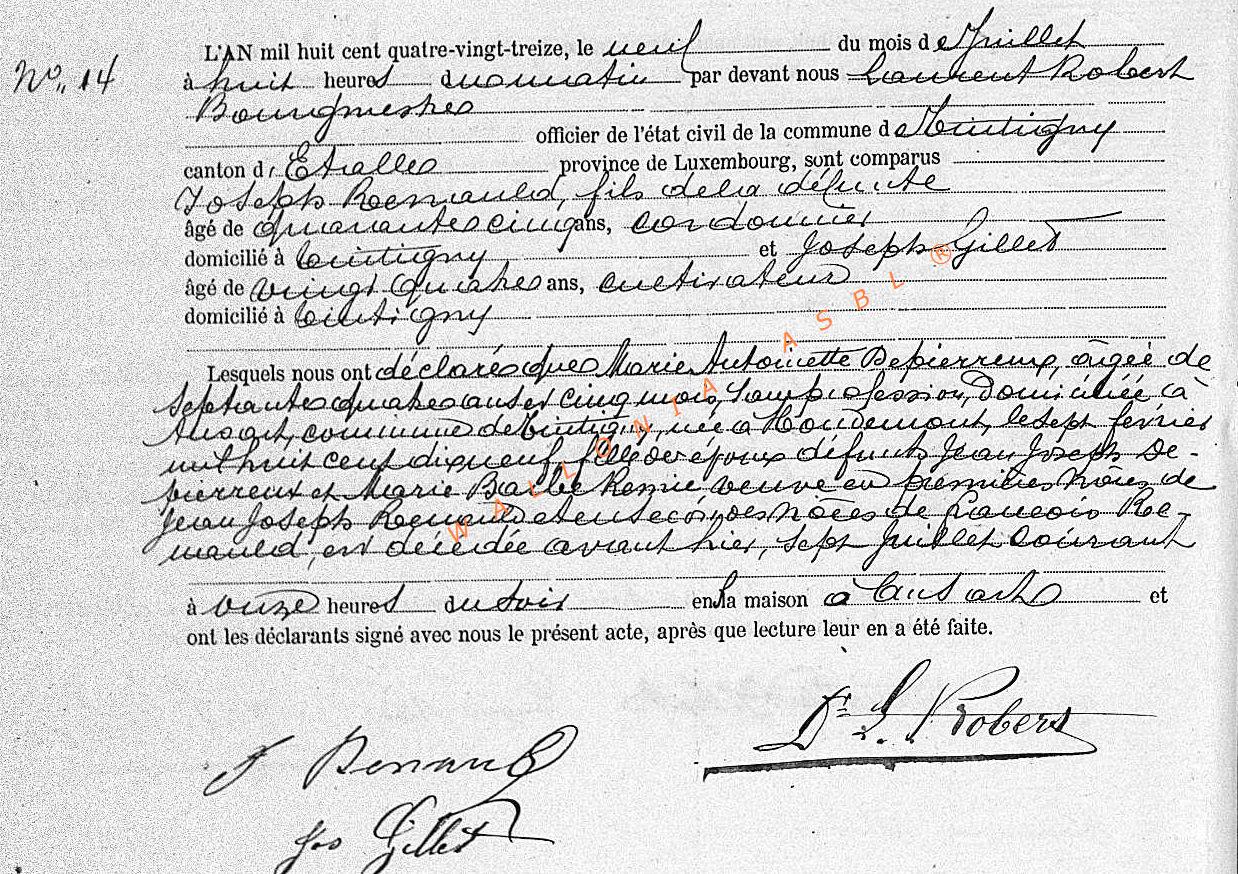 No. 14
L'AN mil huit cent quatre-vingt-treize, le neuf du mois de Juillet
à huit heures du matin par devant nous Laurent Robert
Bourgmestre
officier de l'état civil de la commune de Tintigny
canton d'Etalle province de Luxembourg, sont comparus
Joseph Renauld, fils de la défunte
âgé de quarante cinq ans, cordonnier
domicilié à Tintigny et Joseph Gillet
âgé de vingt quatre ans, cultivateur
domicilié à Tintigny
Lesquels nous ont déclaré que Marie Antoinette Depierreux, âgée de
septante quatre ans et cinq mois, sans profession, domiciliée à
Ansart, commune de Tintigny, née à Houdemont, le sept février
mil huit cent dix neuf, fille des époux défunts Jean Joseph De-
pierreux et Marie Barbe Remie veuve en premières nôces de
Jean Joseph Renauld et en secondes nôces de Francois Re-
nauld, est décédée avant hier, sept Juillet courant
à onze heures du soir en sa maison à Ansart et
ont les déclarants signé avec nous le présent acte, après que lecture leur en a été faite.
Dr L. Robert
J Renauld
Jos Gillet
WALLONIA ASBL ®